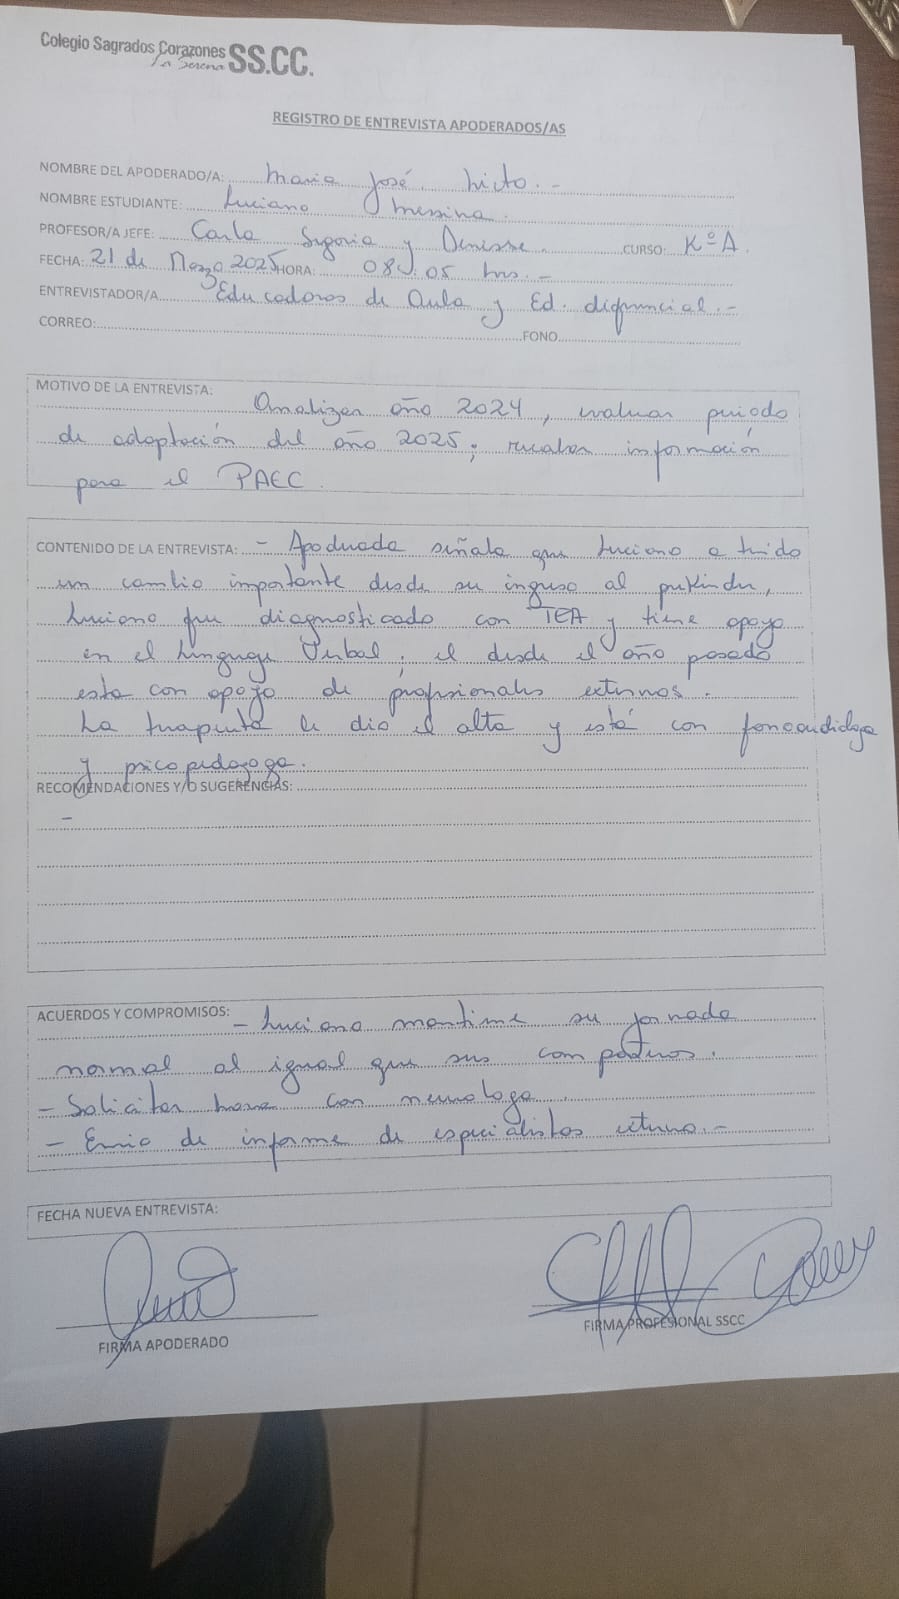 Colegio Sagrados Corazones SS.CC.
La Serena
REGISTRO DE ENTREVISTA APODERADOS/AS
NOMBRE DEL APODERADO/A: Maria José Nieto.-
NOMBRE ESTUDIANTE: Luciano Messina.
PROFESOR/A JEFE: Carla Segovia y Denisse. CURSO: KºA
FECHA: 21 de Marzo 2025 HORA: 08:05 hrs.-
ENTREVISTADOR/A Educadoras de Aula y Ed. diferencial.-
CORREO: FONO
MOTIVO DE LA ENTREVISTA:
Analizar año 2024, evaluar periodo
de adaptación del año 2025, recabar información
para el PAEC
CONTENIDO DE LA ENTREVISTA: - Apoderada señala que Luciano a tenido
un cambio importante desde su ingreso al prekinder,
Luciano fue diagnosticado con TEA y tiene apoyo
en el lenguaje verbal, el desde el año pasado
esta con apoyo de profesionales externos.
La terapeuta le dio el alta y está con fonoaudióloga
y psicopedagoga.
RECOMENDACIONES Y/O SUGERENCIAS:
-
ACUERDOS Y COMPROMISOS: - Luciano mantiene su jornada
normal al igual que sus compañeros.
- Solicitar hora con neurologa.
- Envio de informe de especialistas externo.-
FECHA NUEVA ENTREVISTA:
FIRMA APODERADO
FIRMA PROFESIONAL SSCC